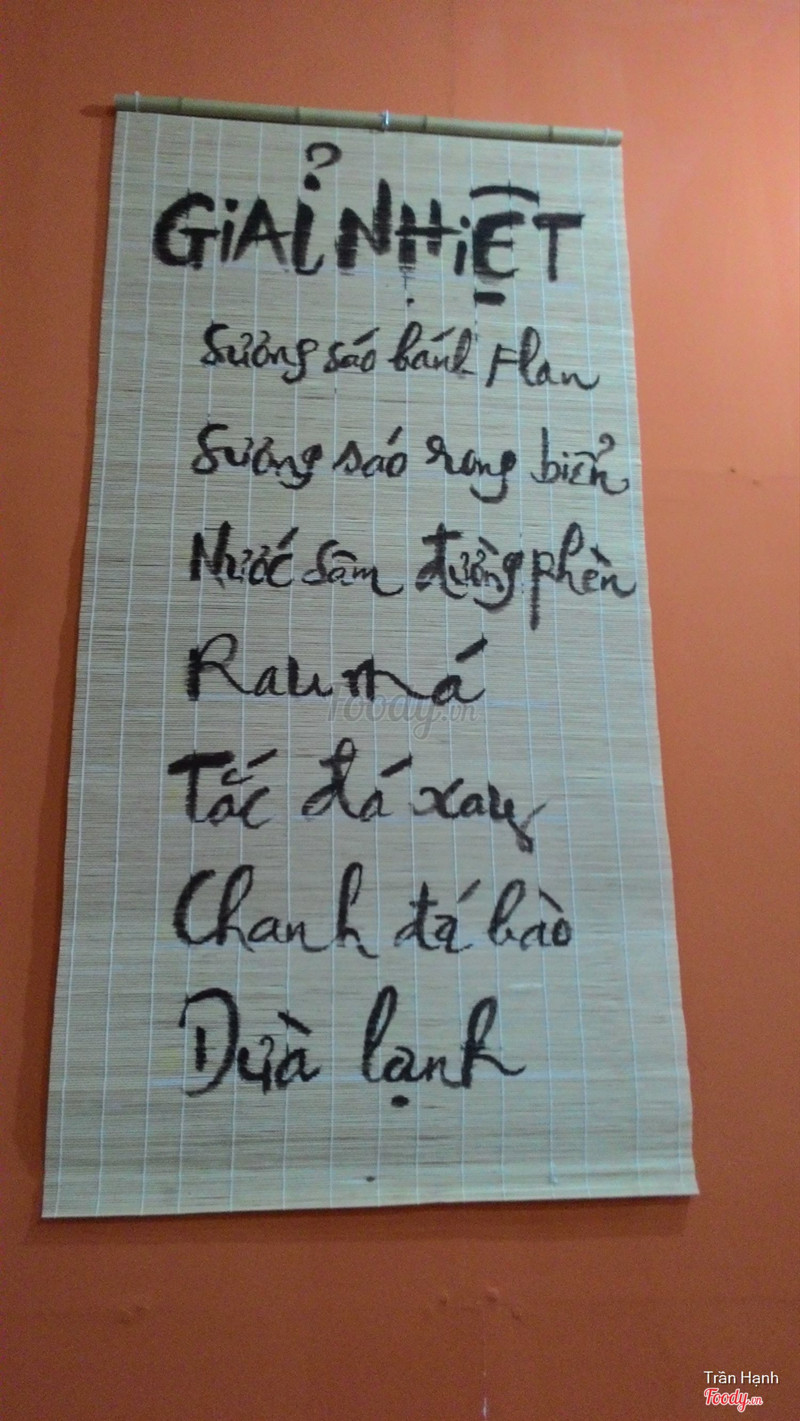 GIẢI NHIỆT
Sương sáo bánh Flan
Sương sáo rong biển
Nước Sâm đường phèn
Rau má
Tắc đá xay
Chanh đá bào
Dừa lạnh
Foody.vn
Trần Hạnh
Foody.vn